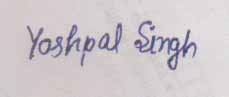 Yoshpal Singh